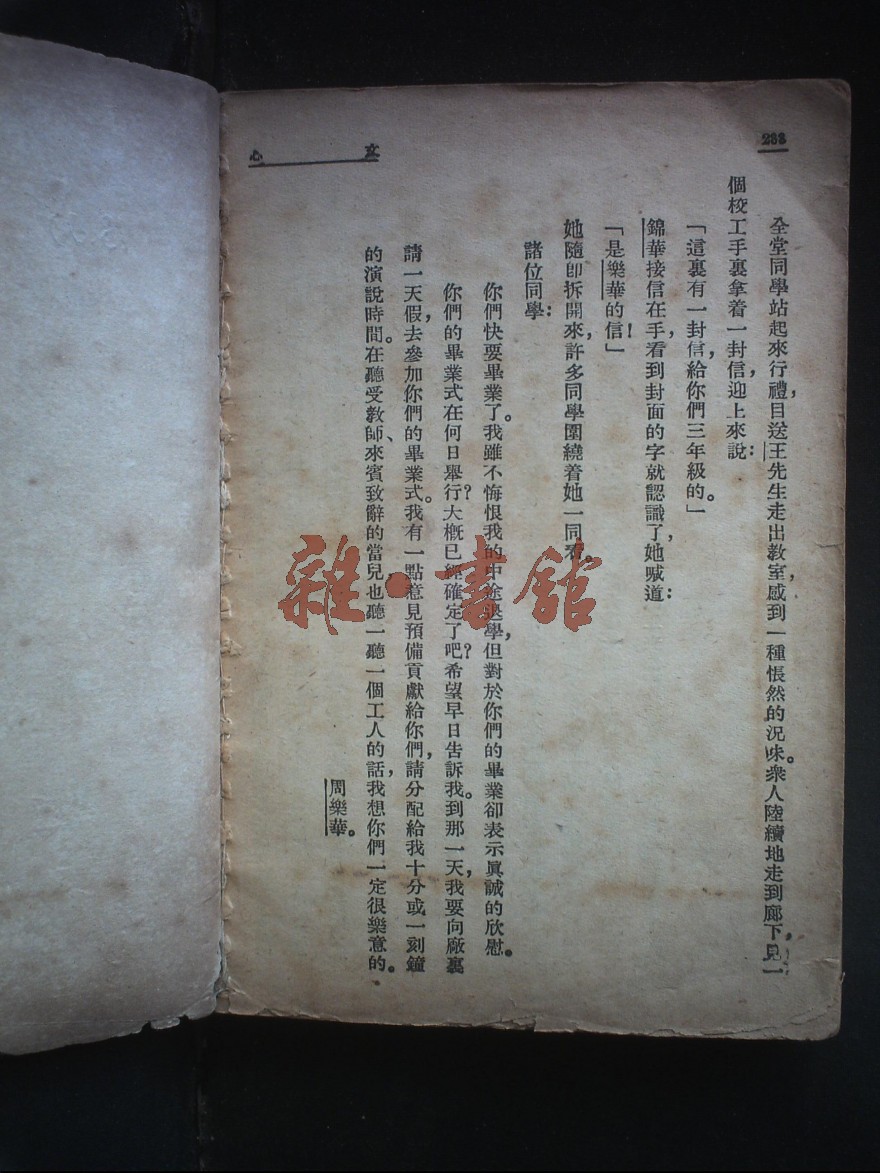 288
文心
全堂同學站起來行禮，目送王先生走出教室，感到一種悵然的況味。衆人陸續地走到廊下，見一
個校工手裏拿着一封信，迎上來說：
「這裏有一封信，給你們三年級的。」
錦華接信在手，看到封面的字就認識了，她喊道：
「是樂華的信！」
她隨卽拆開來，許多同學圍繞着她一同看。
諸位同學：
你們快要畢業了。我雖不悔恨我的中途退學，但對於你們的畢業卻表示眞誠的欣慰。
你們的畢業式在何日舉行？大槪已經確定了吧？希望早日告訴我。到那一天，我要向廠裏
請一天假，去參加你們的畢業式。我有一點意見預備貢獻給你們，請分配給我十分或一刻鐘
的演說時間。在聽受教師、來賓致辭的當兒，也聽一聽一個工人的話，我想你們一定很樂意的。
周樂華。
雜·書館